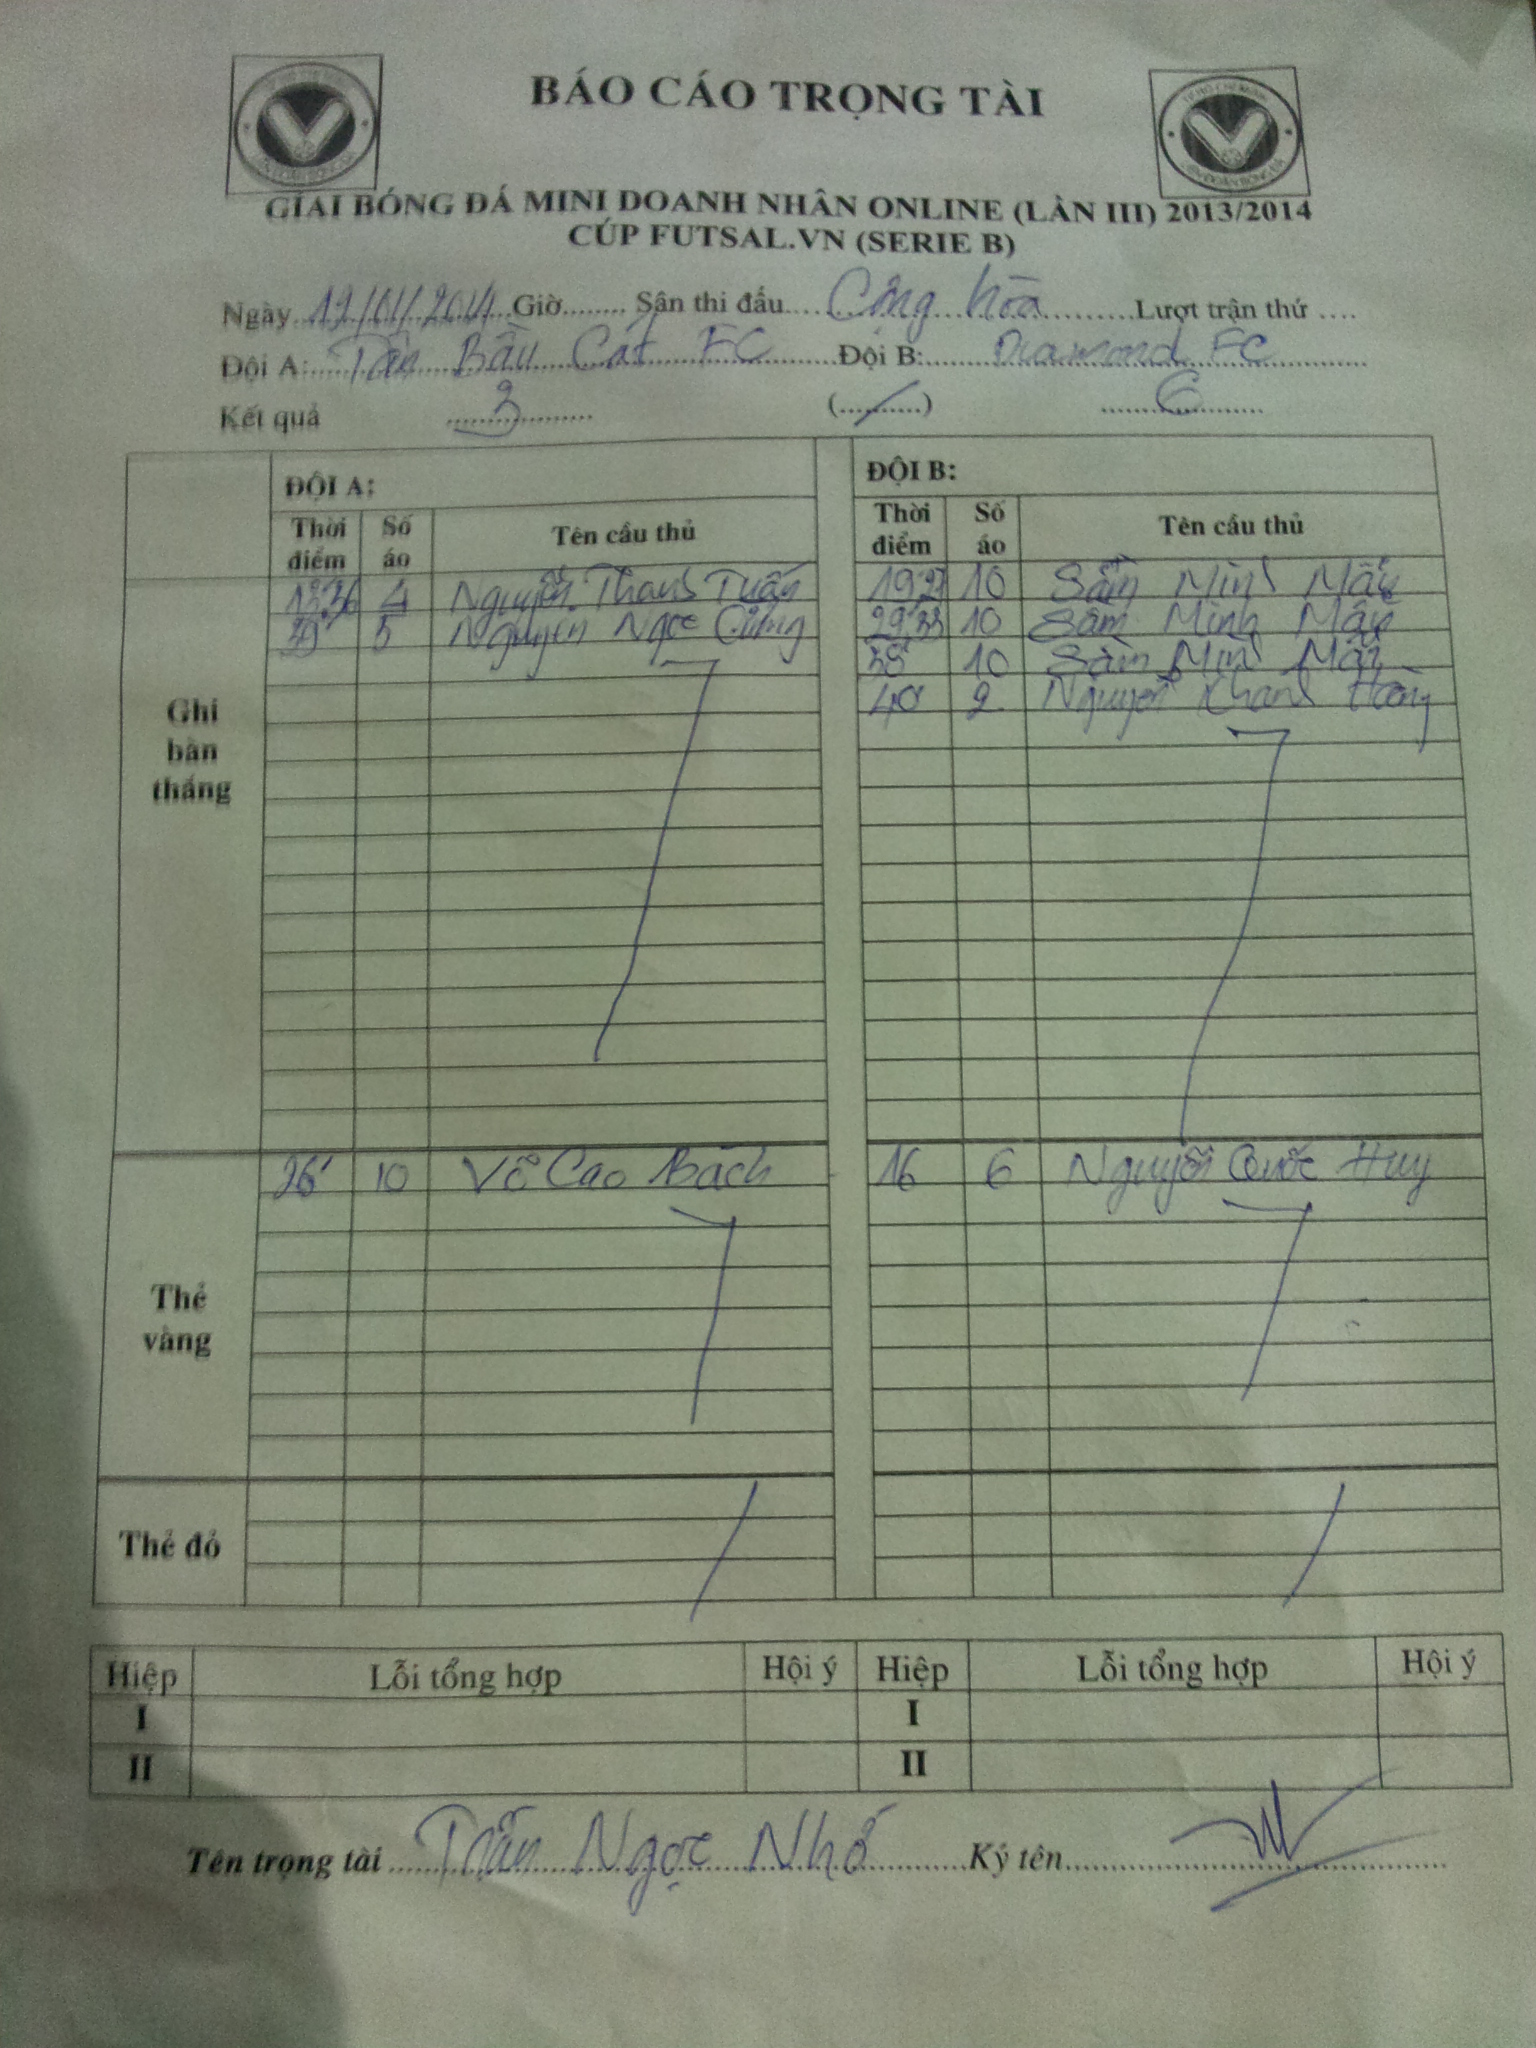 BÁO CÁO TRỌNG TÀI
GIẢI BÓNG ĐÁ MINI DOANH NHÂN ONLINE (LẦN III) 2013/2014
CÚP FUTSAL.VN (SERIE B)
Ngày 19/01/2014 Giờ........ Sân thi đấu Cộng hòa Lượt trận thứ ....
Đội A: Tân Bầu Cát FC Đội B: Diamond FC
Kết quả 3 (.........) 6
ĐỘI A: ĐỘI B:
Thời điểm Số áo Tên cầu thủ Thời điểm Số áo Tên cầu thủ
Ghi bàn thắng
4 Nguyễn Thanh Tuấn 10 Sầm Minh Mẫn
39' 5 Nguyễn Ngọc 29' 33 10 Sầm Minh Mẫn
38' 10 Sầm Minh Mẫn
40' 2 Nguyễn Khánh
Thẻ vàng
26' 10 Võ Cao Bách 16 6 Nguyễn Quốc Huy
Thẻ đỏ
Hiệp Lỗi tổng hợp Hội ý Hiệp Lỗi tổng hợp Hội ý
I I
II II
Tên trọng tài Trần Ngọc Nhớ Ký tên